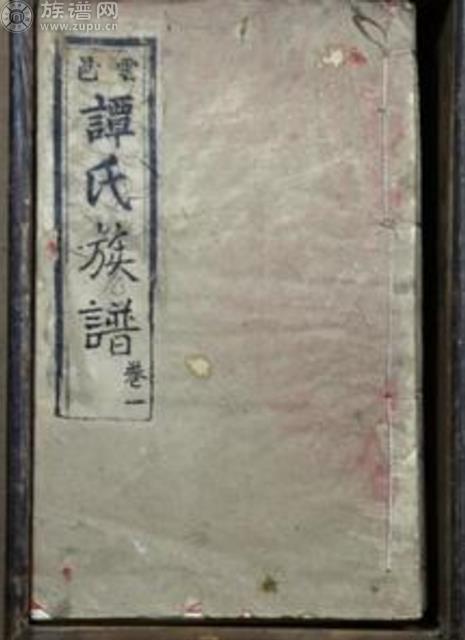 族谱网
www.zupu.cn
雲邑
譚氏族譜
卷一